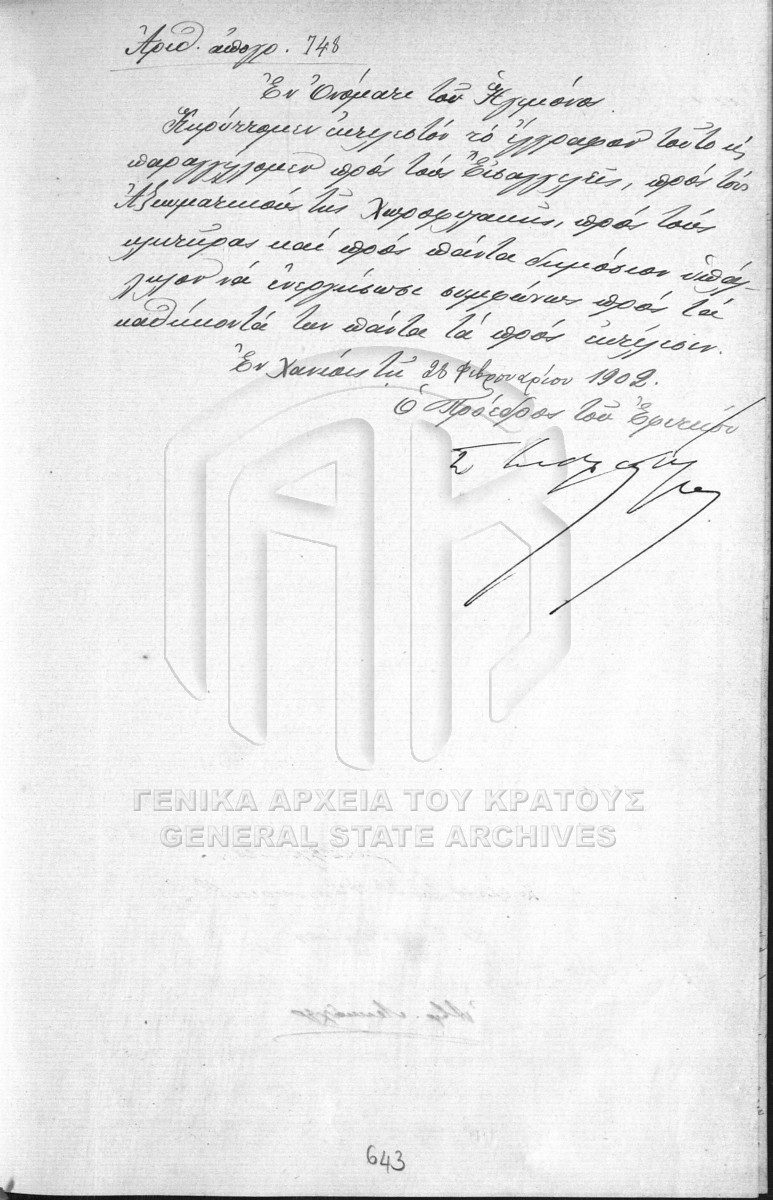 Ἀριθ. ἀπογρ. 748
Ἐν Ὀνόματι τοῦ Ἡγεμόνος
Κηρύττομεν ἐκτελεστὸν τὸ ἔγγραφον τοῦτο κ
παραγγέλλομεν πρὸς τοὺς Εἰσαγγελεῖς, πρὸς τοὺς
Ἀξιωματικοὺς τῆς Χωροφυλακῆς, πρὸς τοὺς
κλητῆρας καὶ πρὸς πάντα δημόσιον ὑπάλ-
ληλον νὰ ἐνεργήσωσι συμφώνως πρὸς τὰ
καθήκοντά των πάντα τὰ πρὸς ἐκτέλεσιν.
Ἐν Χανίοις τῇ 28 Φεβρουαρίου 1902.
Ὁ Πρόεδρος τοῦ Ἐφετείου
ΓΕΝΙΚΑ ΑΡΧΕΙΑ ΤΟΥ ΚΡΑΤΟΥΣ
GENERAL STATE ARCHIVES
643